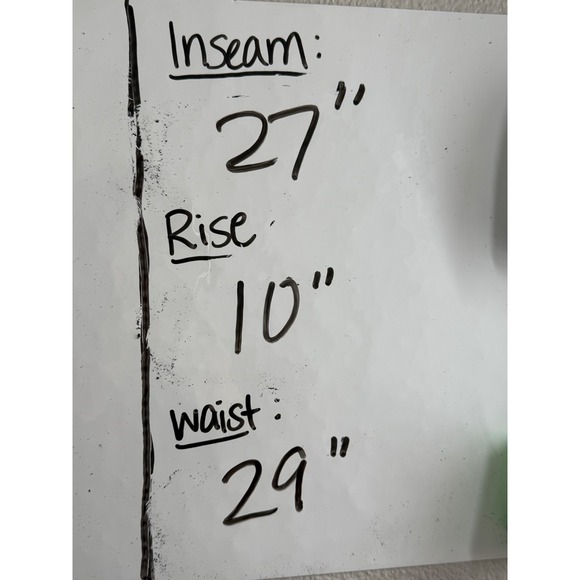 Inseam:
27"
Rise
10"
waist:
29"